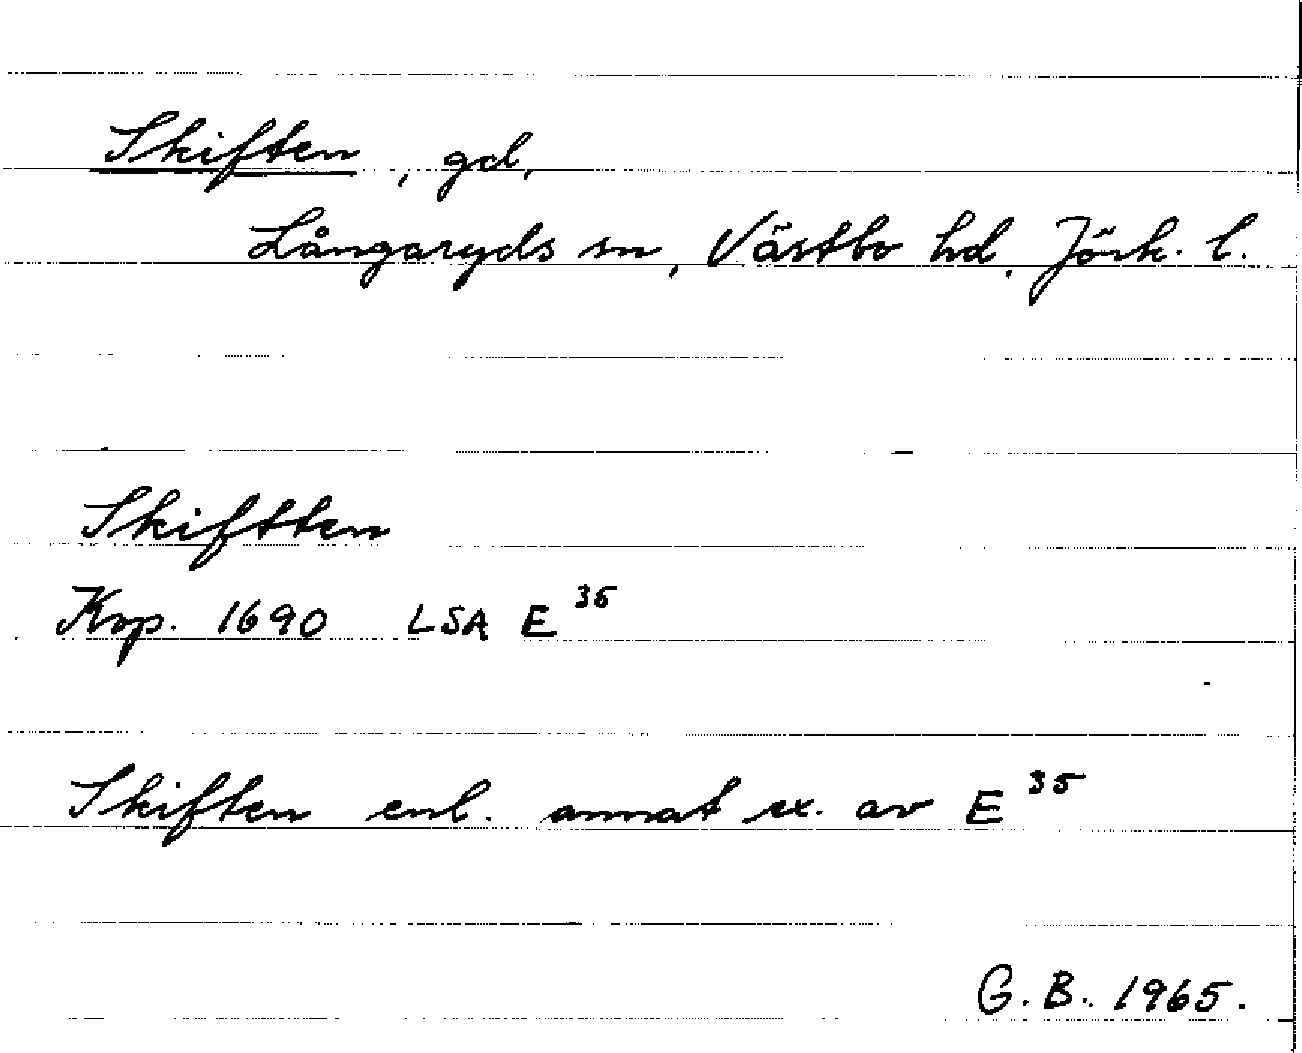 Skiften, gd,
Långaryds sn, Västbo hd. Jönk. l.
Skiftten
Kop. 1690 LSA E 35
Skiften enl. annat ex. av E 35
G. B. 1965.